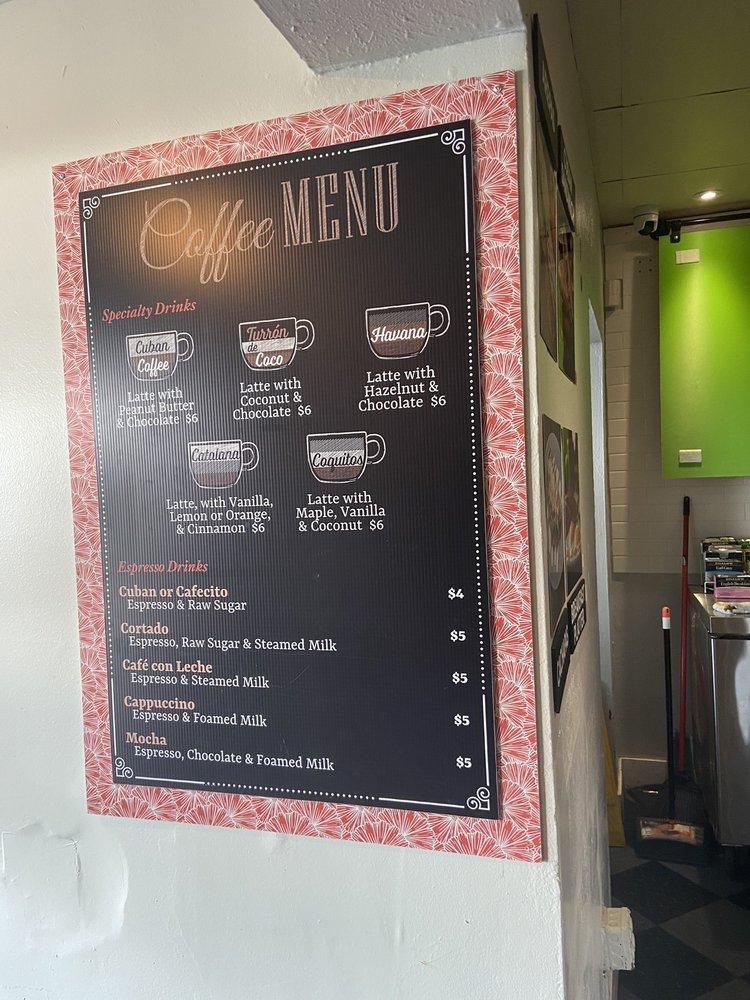 Coffee MENU
Specialty Drinks
Cuban
Coffee
Latte with
Peanut Butter
& Chocolate $6
Turrón
de
Coco
Latte with
Coconut &
Chocolate $6
Havana
Latte with
Hazelnut &
Chocolate $6
Catalana
Latte, with Vanilla,
Lemon or Orange,
& Cinnamon $6
Coquitos
Latte with
Maple, Vanilla
& Coconut $6
Espresso Drinks
Cuban or Cafecito $4
Espresso & Raw Sugar
Cortado $5
Espresso, Raw Sugar & Steamed Milk
Café con Leche $5
Espresso & Steamed Milk
Cappuccino $5
Espresso & Foamed Milk
Mocha $5
Espresso, Chocolate & Foamed Milk